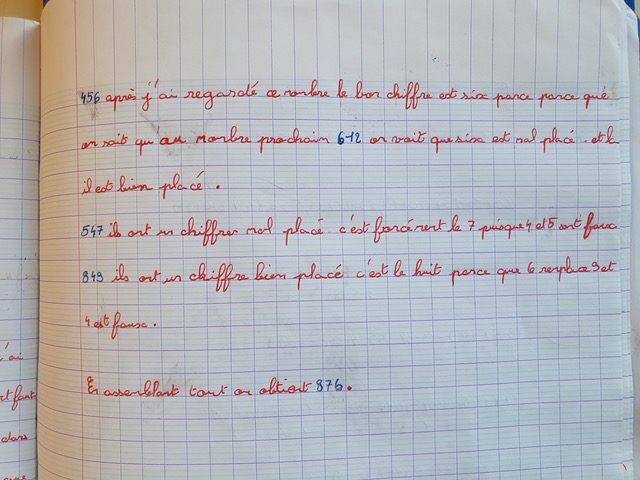 456 après j'ai regardé ce nombre le bon chiffre est six parce parce que
on sait qu'au nombre prochain 612 on voit que six est mal placé et là
il est bien placé.
547 ils ont un chiffres mal placé c'est forcément le 7 puisque 4 et 5 sont faux
849 ils ont un chiffre bien placé c'est le huit parce que 6 remplace 9 et
4 est fausc.
En assemblant tout on obtient 876.
'ai
rt font
dans